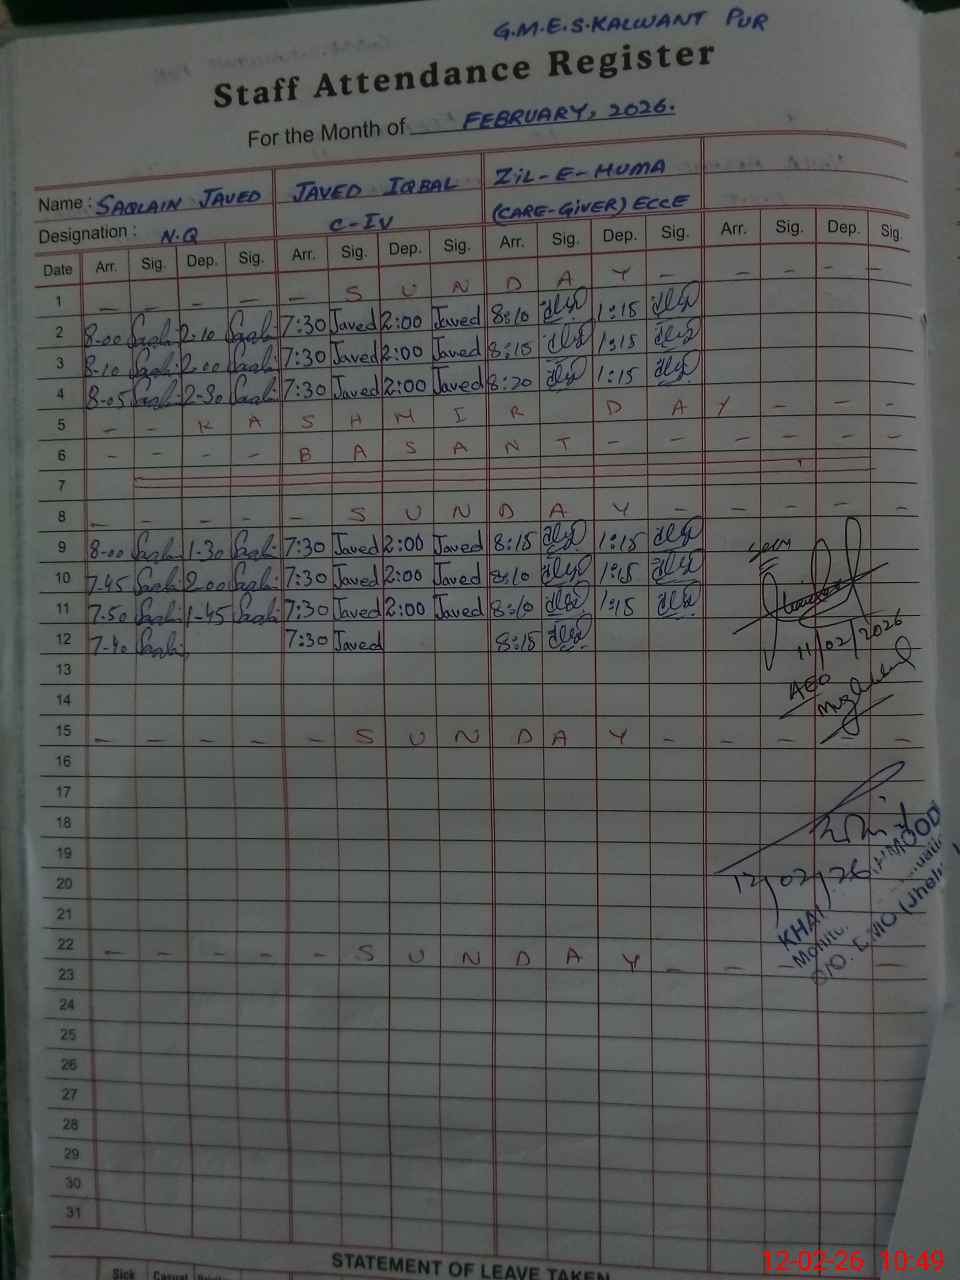 G.M.E.S.KALWANT PUR
Staff Attendance Register
For the Month of FEBRUARY, 2026.
Name : SAQLAIN JAVED JAVED IQBAL ZIL-E-HUMA
Designation : N.Q C-IV (CARE-GIVER) ECCE
Date Arr. Sig. Dep. Sig. Arr. Sig. Dep. Sig. Arr. Sig. Dep. Sig. Arr. Sig. Dep. Sig.
1 – – – – – S U N D A Y – – – – –
2 8-00 Saqli 2-10 Saqli 7:30 Javed 2:00 Javed 8:10 1:15
3 8-10 Saqli 2-00 Saqli 7:30 Javed 2:00 Javed 8:15 1:15
4 8-05 Saqli 2-30 Saqli 7:30 Javed 2:00 Javed 8:20 1:15
5 – – K A S H M I R D A Y – – –
6 – – – – B A S A N T – – – – – –
7
8 – – – – – S U N D A Y – – – – –
9 8-00 Saqli 1-30 Saqli 7:30 Javed 2:00 Javed 8:15 1:15
10 7-45 Saqli 2-00 Saqli 7:30 Javed 2:00 Javed 8:10 1:15
11 7-50 Saqli 1-45 Saqli 7:30 Javed 2:00 Javed 8:10 1:15
12 7-40 Saqli 7:30 Javed 8:15
Seen
11/02/2026
AEO
13
14
15 – – – – – S U N D A Y – – – – –
16
17
18
19
20
12/02/26
21
22 – – – – – S U N D A Y – – – –
23
24
25
26
27
28
29
30
31
STATEMENT OF LEAVE TAKEN
Sick Casual
12-02-26 10:49